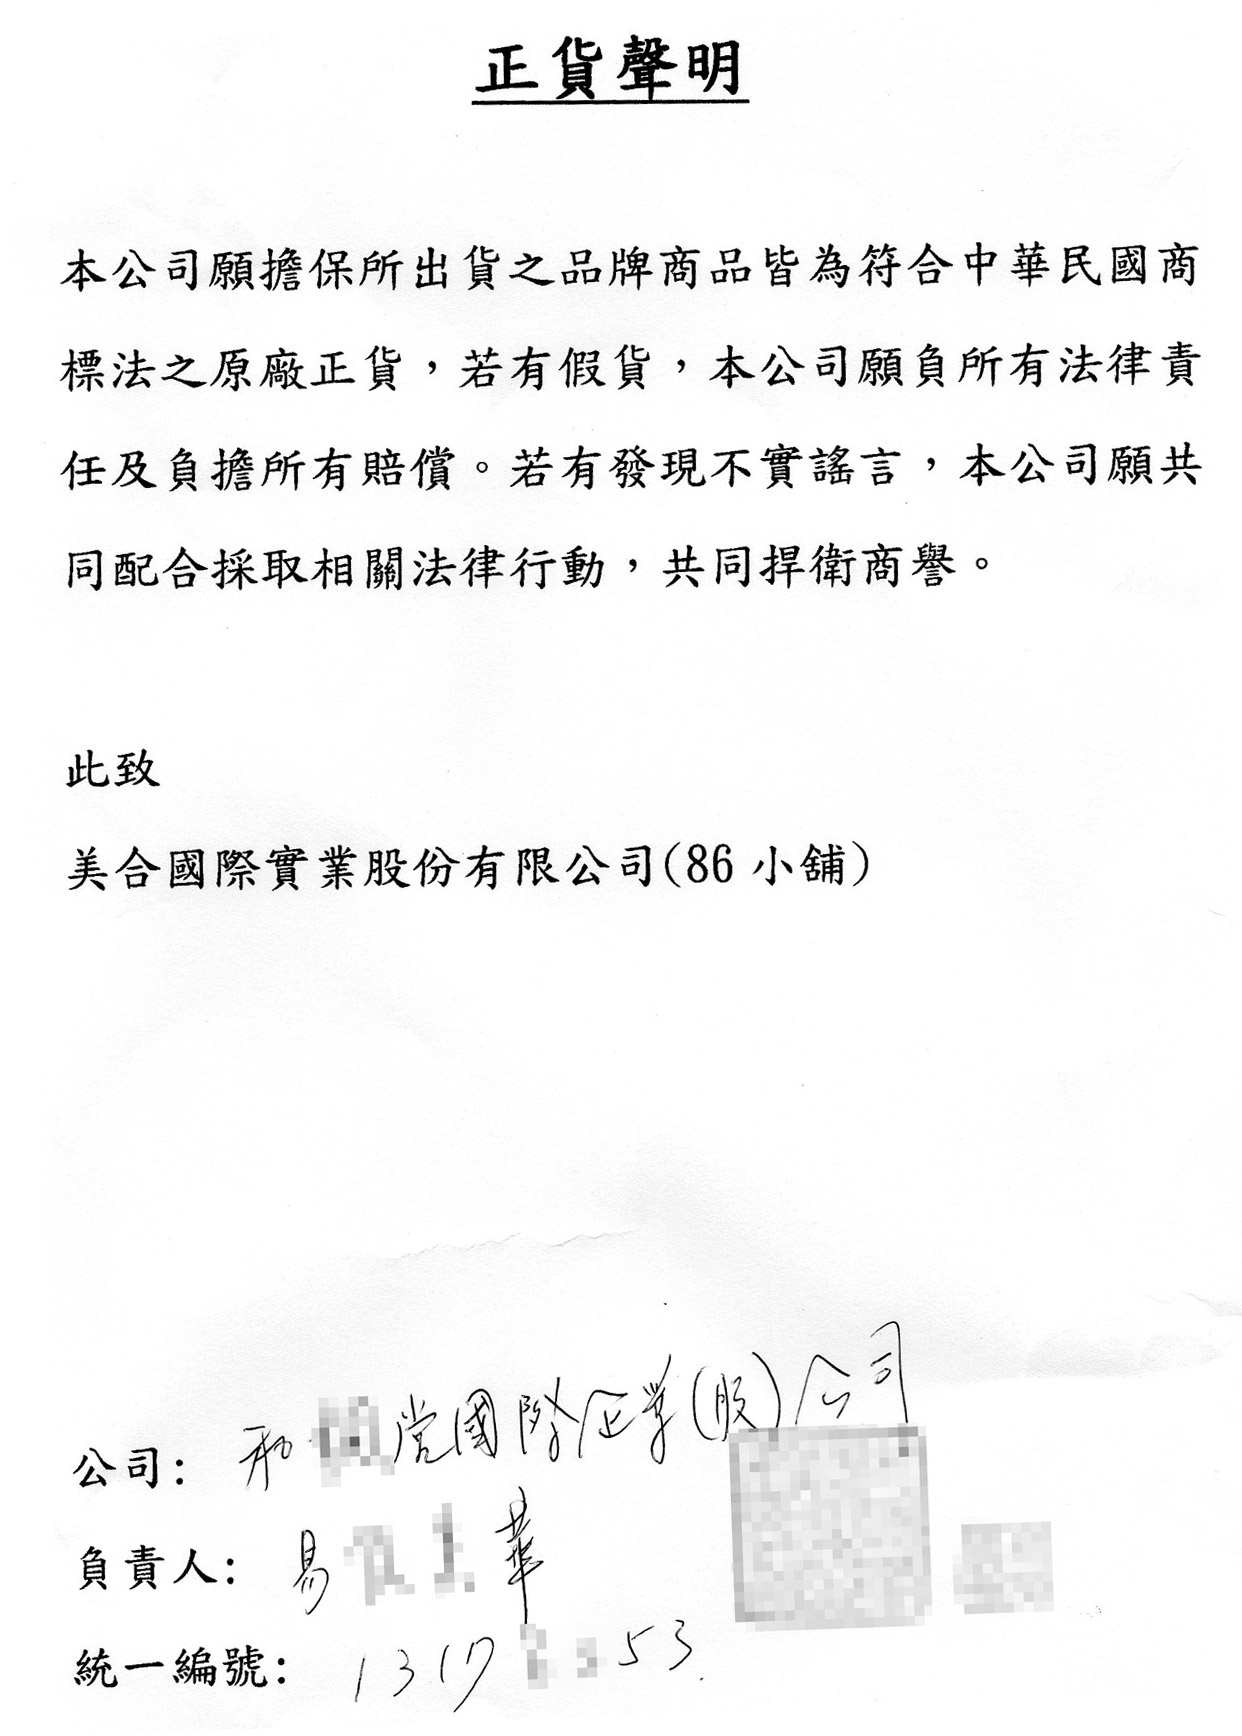 正貨聲明
本公司願擔保所出貨之品牌商品皆為符合中華民國商
標法之原廠正貨，若有假貨，本公司願負所有法律責
任及負擔所有賠償。若有發現不實謠言，本公司願共
同配合採取相關法律行動，共同捍衛商譽。
此致
美合國際實業股份有限公司(86 小舖)
公司: 和 堂國際企業(股)公司
負責人: 易 華
統一編號: 1317 53